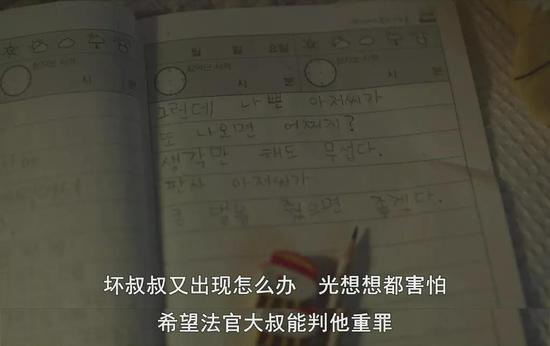 월 일 요일
시 분
시 분
그런데 나쁜 아저씨가
또 나오면 어쩌지?
생각만 해도 무섭다.
판사 아저씨가
큰 벌을 줬으면 좋겠다.
坏叔叔又出现怎么办 光想想都害怕
希望法官大叔能判他重罪